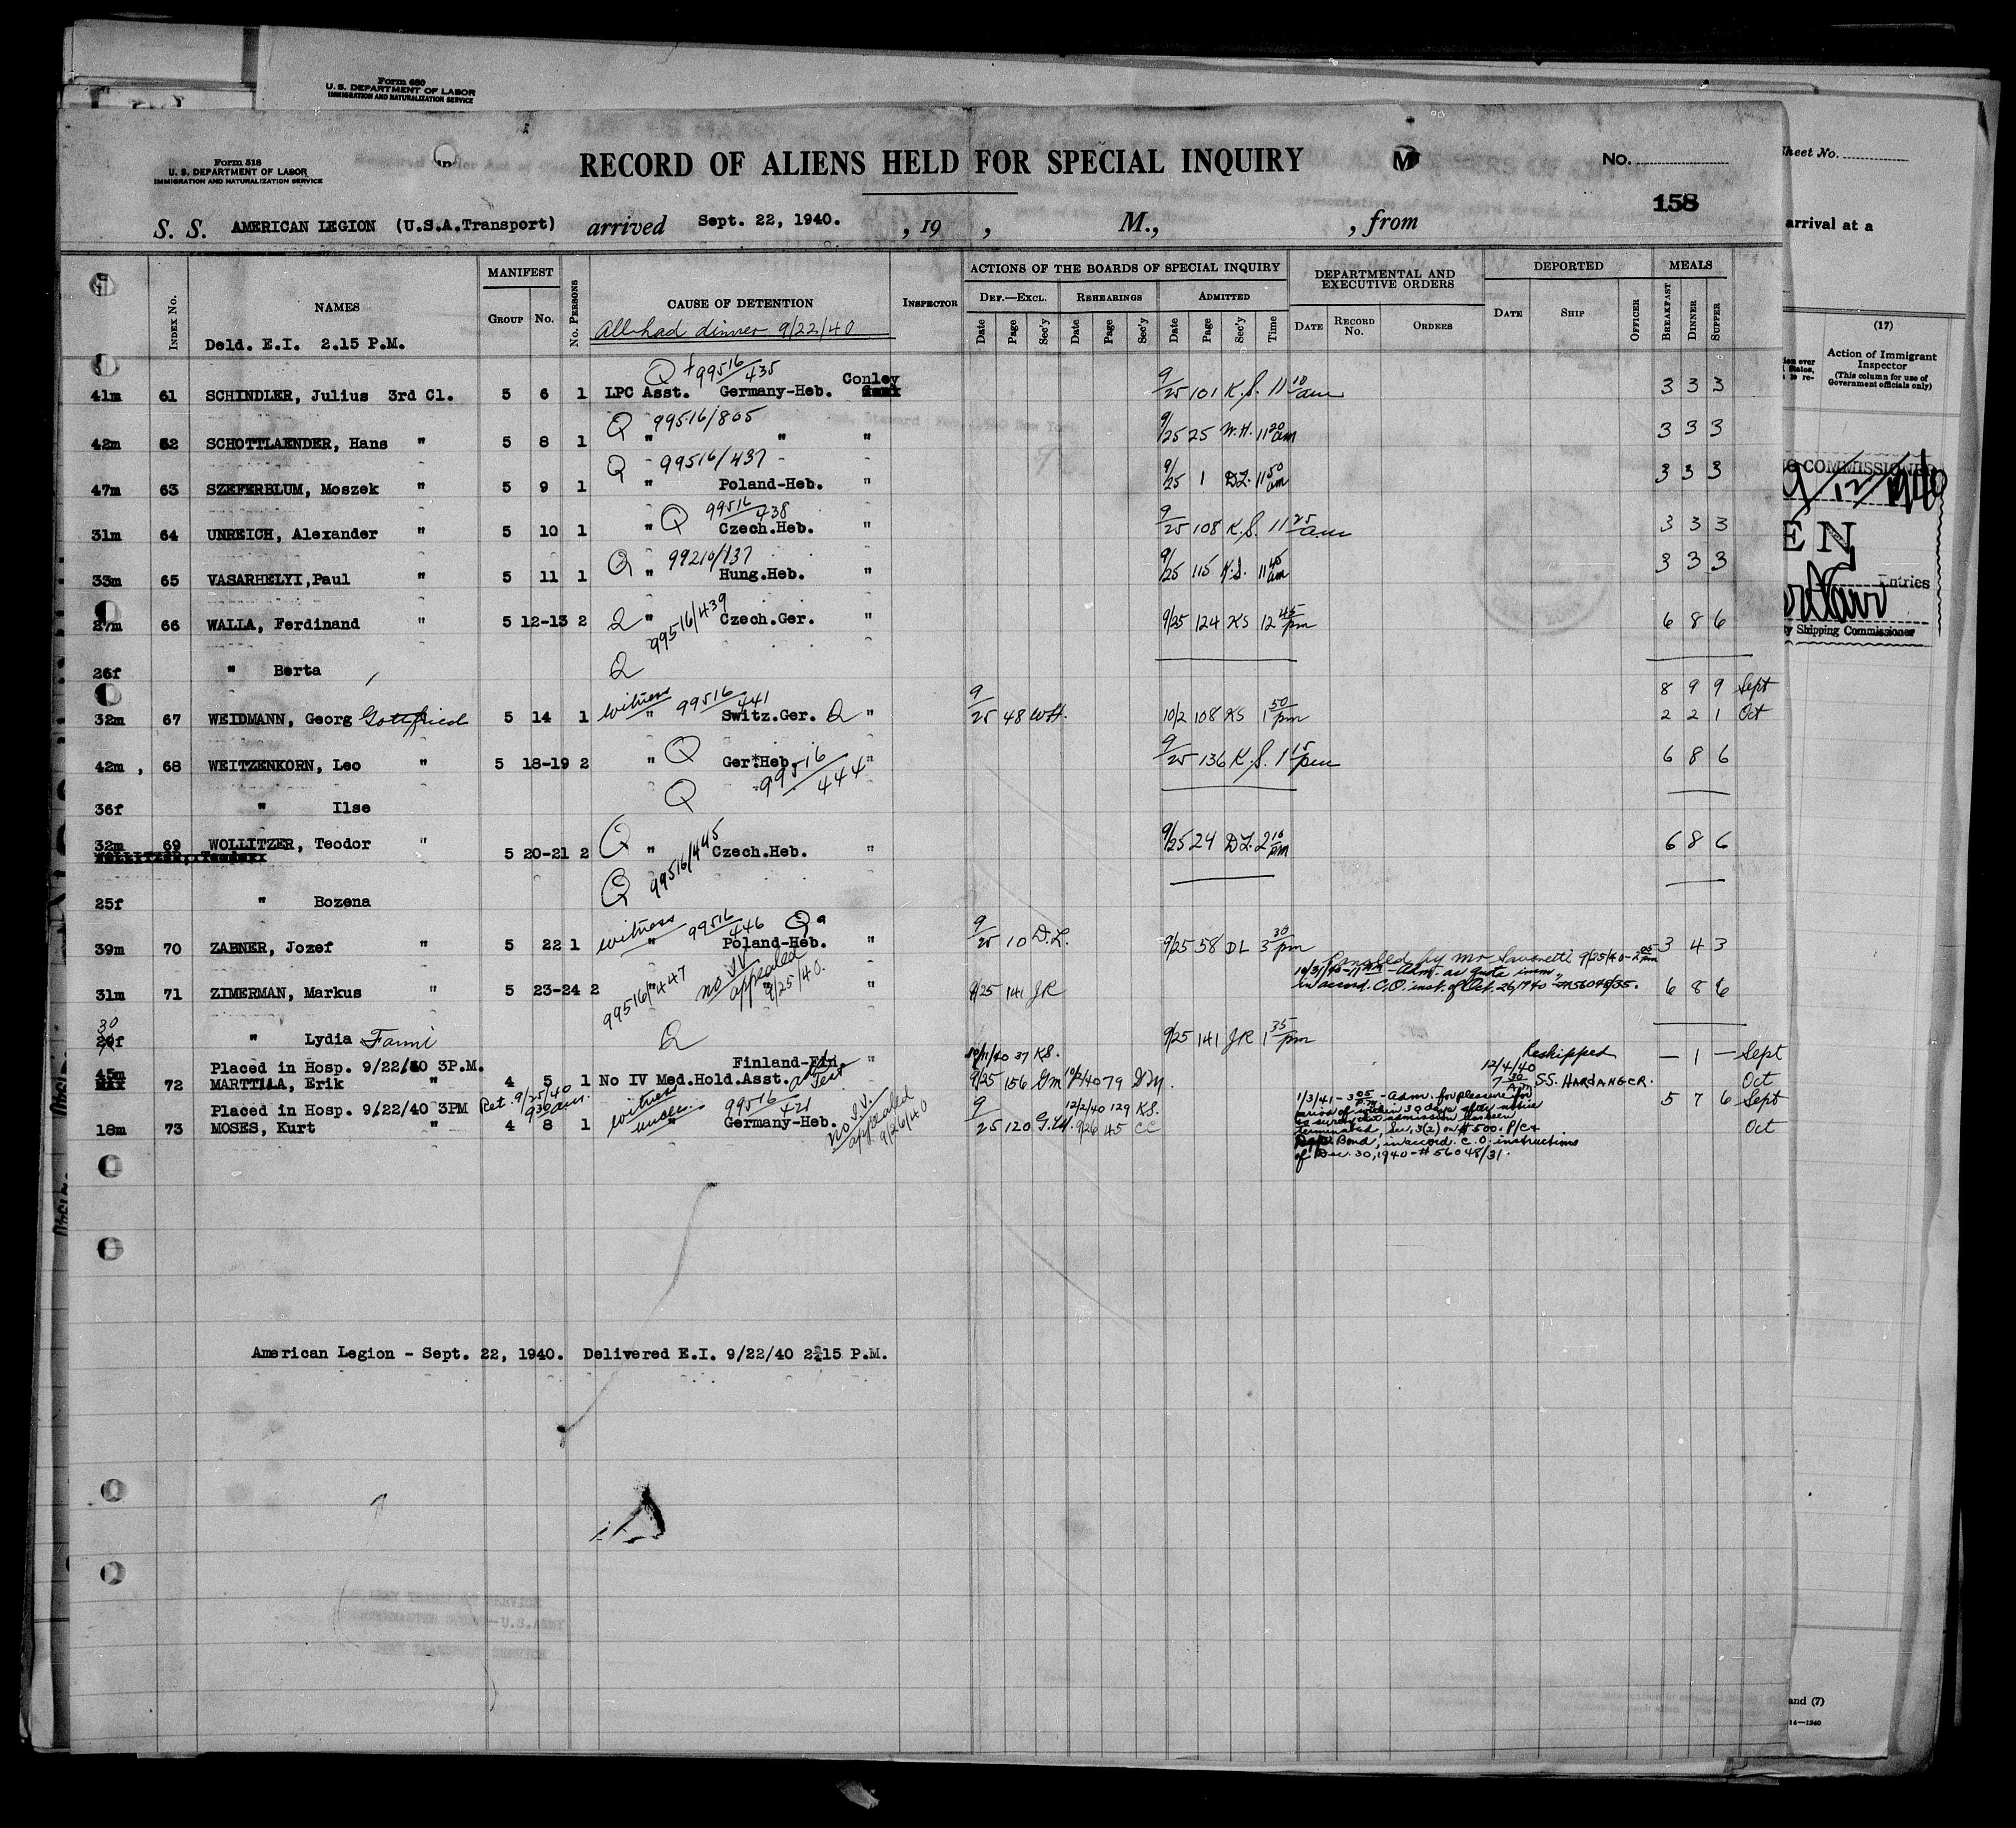 Form 680
U. S. DEPARTMENT OF LABOR
IMMIGRATION AND NATURALIZATION SERVICE
Form 518
U. S. DEPARTMENT OF LABOR
IMMIGRATION AND NATURALIZATION SERVICE
RECORD OF ALIENS HELD FOR SPECIAL INQUIRY M No.
158
S. S. AMERICAN LEGION (U.S.A.Transport) arrived Sept. 22, 1940. , 19 , M., , from
INDEX No. NAMES MANIFEST GROUP No. No. PERSONS CAUSE OF DETENTION INSPECTOR
ACTIONS OF THE BOARDS OF SPECIAL INQUIRY DEF.—EXCL. REHEARINGS ADMITTED
Date Page Sec'y Date Page Sec'y Date Page Sec'y Time
DEPARTMENTAL AND EXECUTIVE ORDERS DATE RECORD No. ORDERS
DEPORTED DATE SHIP OFFICER MEALS BREAKFAST DINNER SUPPER
Deld. E.I. 2.15 P.M. All had dinner 9/22/40
Q 99516/435 Conley
41m 61 SCHINDLER, Julius 3rd Cl. 5 6 1 LPC Asst. Germany-Heb. 9/25 101 K.S. 11 10 am 3 3 3
Q 99516/805
42m 62 SCHOTTLAENDER, Hans " 5 8 1 " " " 9/25 25 W.H. 11 20 am 3 3 3
Q 99516/437
47m 63 SZEFERBLUM, Moszek " 5 9 1 " Poland-Heb. " 9/25 1 DL. 11 50 am 3 3 3
Q 99516/438
31m 64 UNREICH, Alexander " 5 10 1 " Czech.Heb. " 9/25 108 K.S. 11 25 am 3 3 3
Q 99210/137
33m 65 VASARHELYI,Paul " 5 11 1 " Hung.Heb. " 9/25 115 K.S. 11 45 am 3 3 3
27m 66 WALLA, Ferdinand " 5 12-13 2 Q " 99516/439 Czech.Ger. " 9/25 124 KS 12 45 pm 6 8 6
26f " Berta Q
8 9 9 Sept
witness 99516/441
32m 67 WEIDMANN, Georg Gottfried 5 14 1 " Switz.Ger. Q " 9/25 48 WH. 10/2 108 KS 1 50 pm 2 2 1 Oct
42m 68 WEITZENKORN, Leo " 5 18-19 2 " Q Ger.Heb. " 9/25 136 K.S. 1 15 pm 6 8 6
36f " Ilse Q 99516/444
32m 69 WOLLITZER, Teodor " 5 20-21 2 Q " 99516/445 Czech.Heb. " 9/25 24 DL. 2 10 pm 6 8 6
25f " Bozena Q
witness 99516/446 Q
39m 70 ZABNER, Jozef " 5 22 1 " Poland-Heb. " 9/25 10 D.L. 9/25 58 DL 3 30 pm 3 4 3
by Mr 9/25/40
10/31/40-11 AM - Adm. as quota imm.
in accord. C.O. inst. of Oct. 26, 1940
31m 71 ZIMERMAN, Markus " 5 23-24 2 99516/447 no IV appealed 9/25/40. " 9/25 141 JR 6 8 6
30
" Lydia Fanni Q 9/25 141 JR 1 35 pm
Placed in Hosp. 9/22/40 3P.M. Finland-Fin. " 10/11/40 37 KS. Reshipped — 1 — Sept
45m 72 MARTTILA, Erik " 4 5 1 No IV Med.Hold.Asst. 9/25 156 GM 79 12/4/40 7 30 AM S.S. HARDANGER. Oct
Placed in Hosp. 9/22/40 3PM Ret. 9/25/40 930 am. witness 99516/421 12/2/40 129 K.S. 5 7 6 Sept
18m 73 MOSES, Kurt " 4 8 1 " Germany-Heb. no I.V. appealed 9/26/40 9/25 120 9/26 45 CC Oct
1/3/41 - 3 05 P.M. - Adm. for pleasure for
period of within 30 days after notice
to surety that admission has been
terminated, Sec. 3(2) on $500. P/C &
Dept. Bond, in accord. C.O. instructions
of Dec. 30, 1940 - #56048/31.
American Legion - Sept. 22, 1940. Delivered E.I. 9/22/40 2:15 P.M.
Sheet No.
arrival at a
(17)
Action of Immigrant Inspector
(This column for use of Government officials only)
COMMISSIONER
9/12/1940
EN
Entries
Shipping Commissioner
and (7)
14—1240